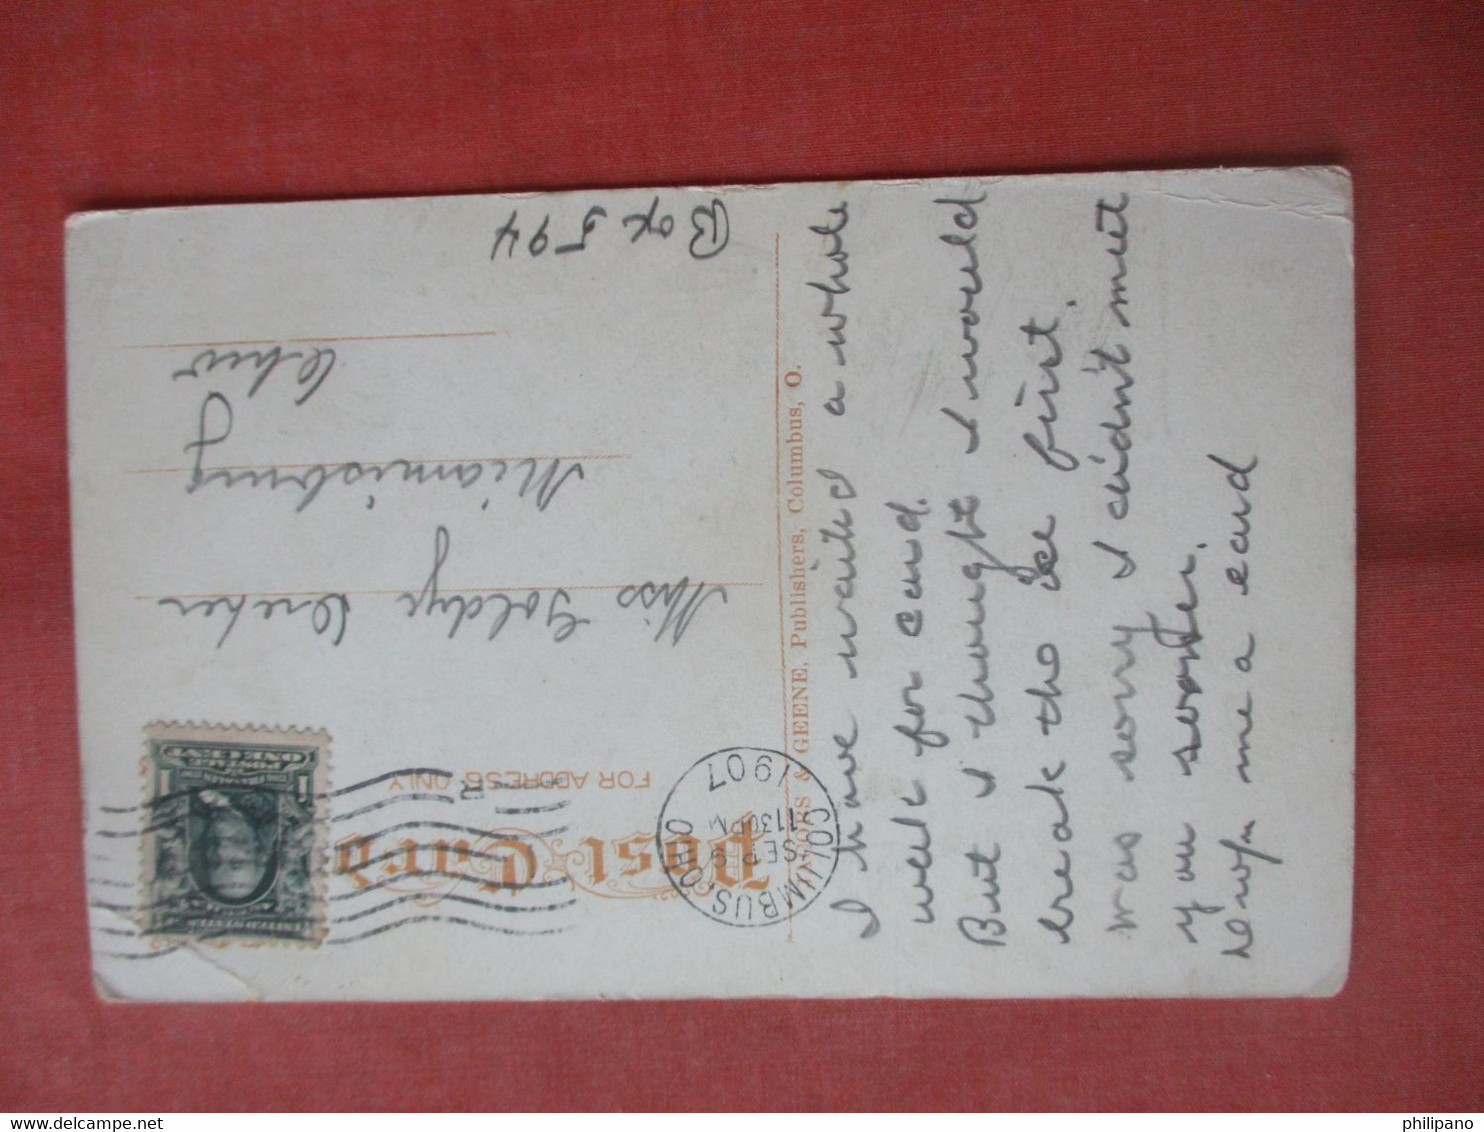 Post Card
FOR ADDRESS ONLY
COLUMBUS, OHIO
SEP 9
1130PM
1907
ONE CENT
1
Miss Goldye
Miamisburg
Ohio
Box 594
& GEENE, Publishers, Columbus, O.
I have waited a whole
week for card.
But I thought I would
break the ice first.
was sorry I didn't meet
you sooner.
Drop me a card
philipano